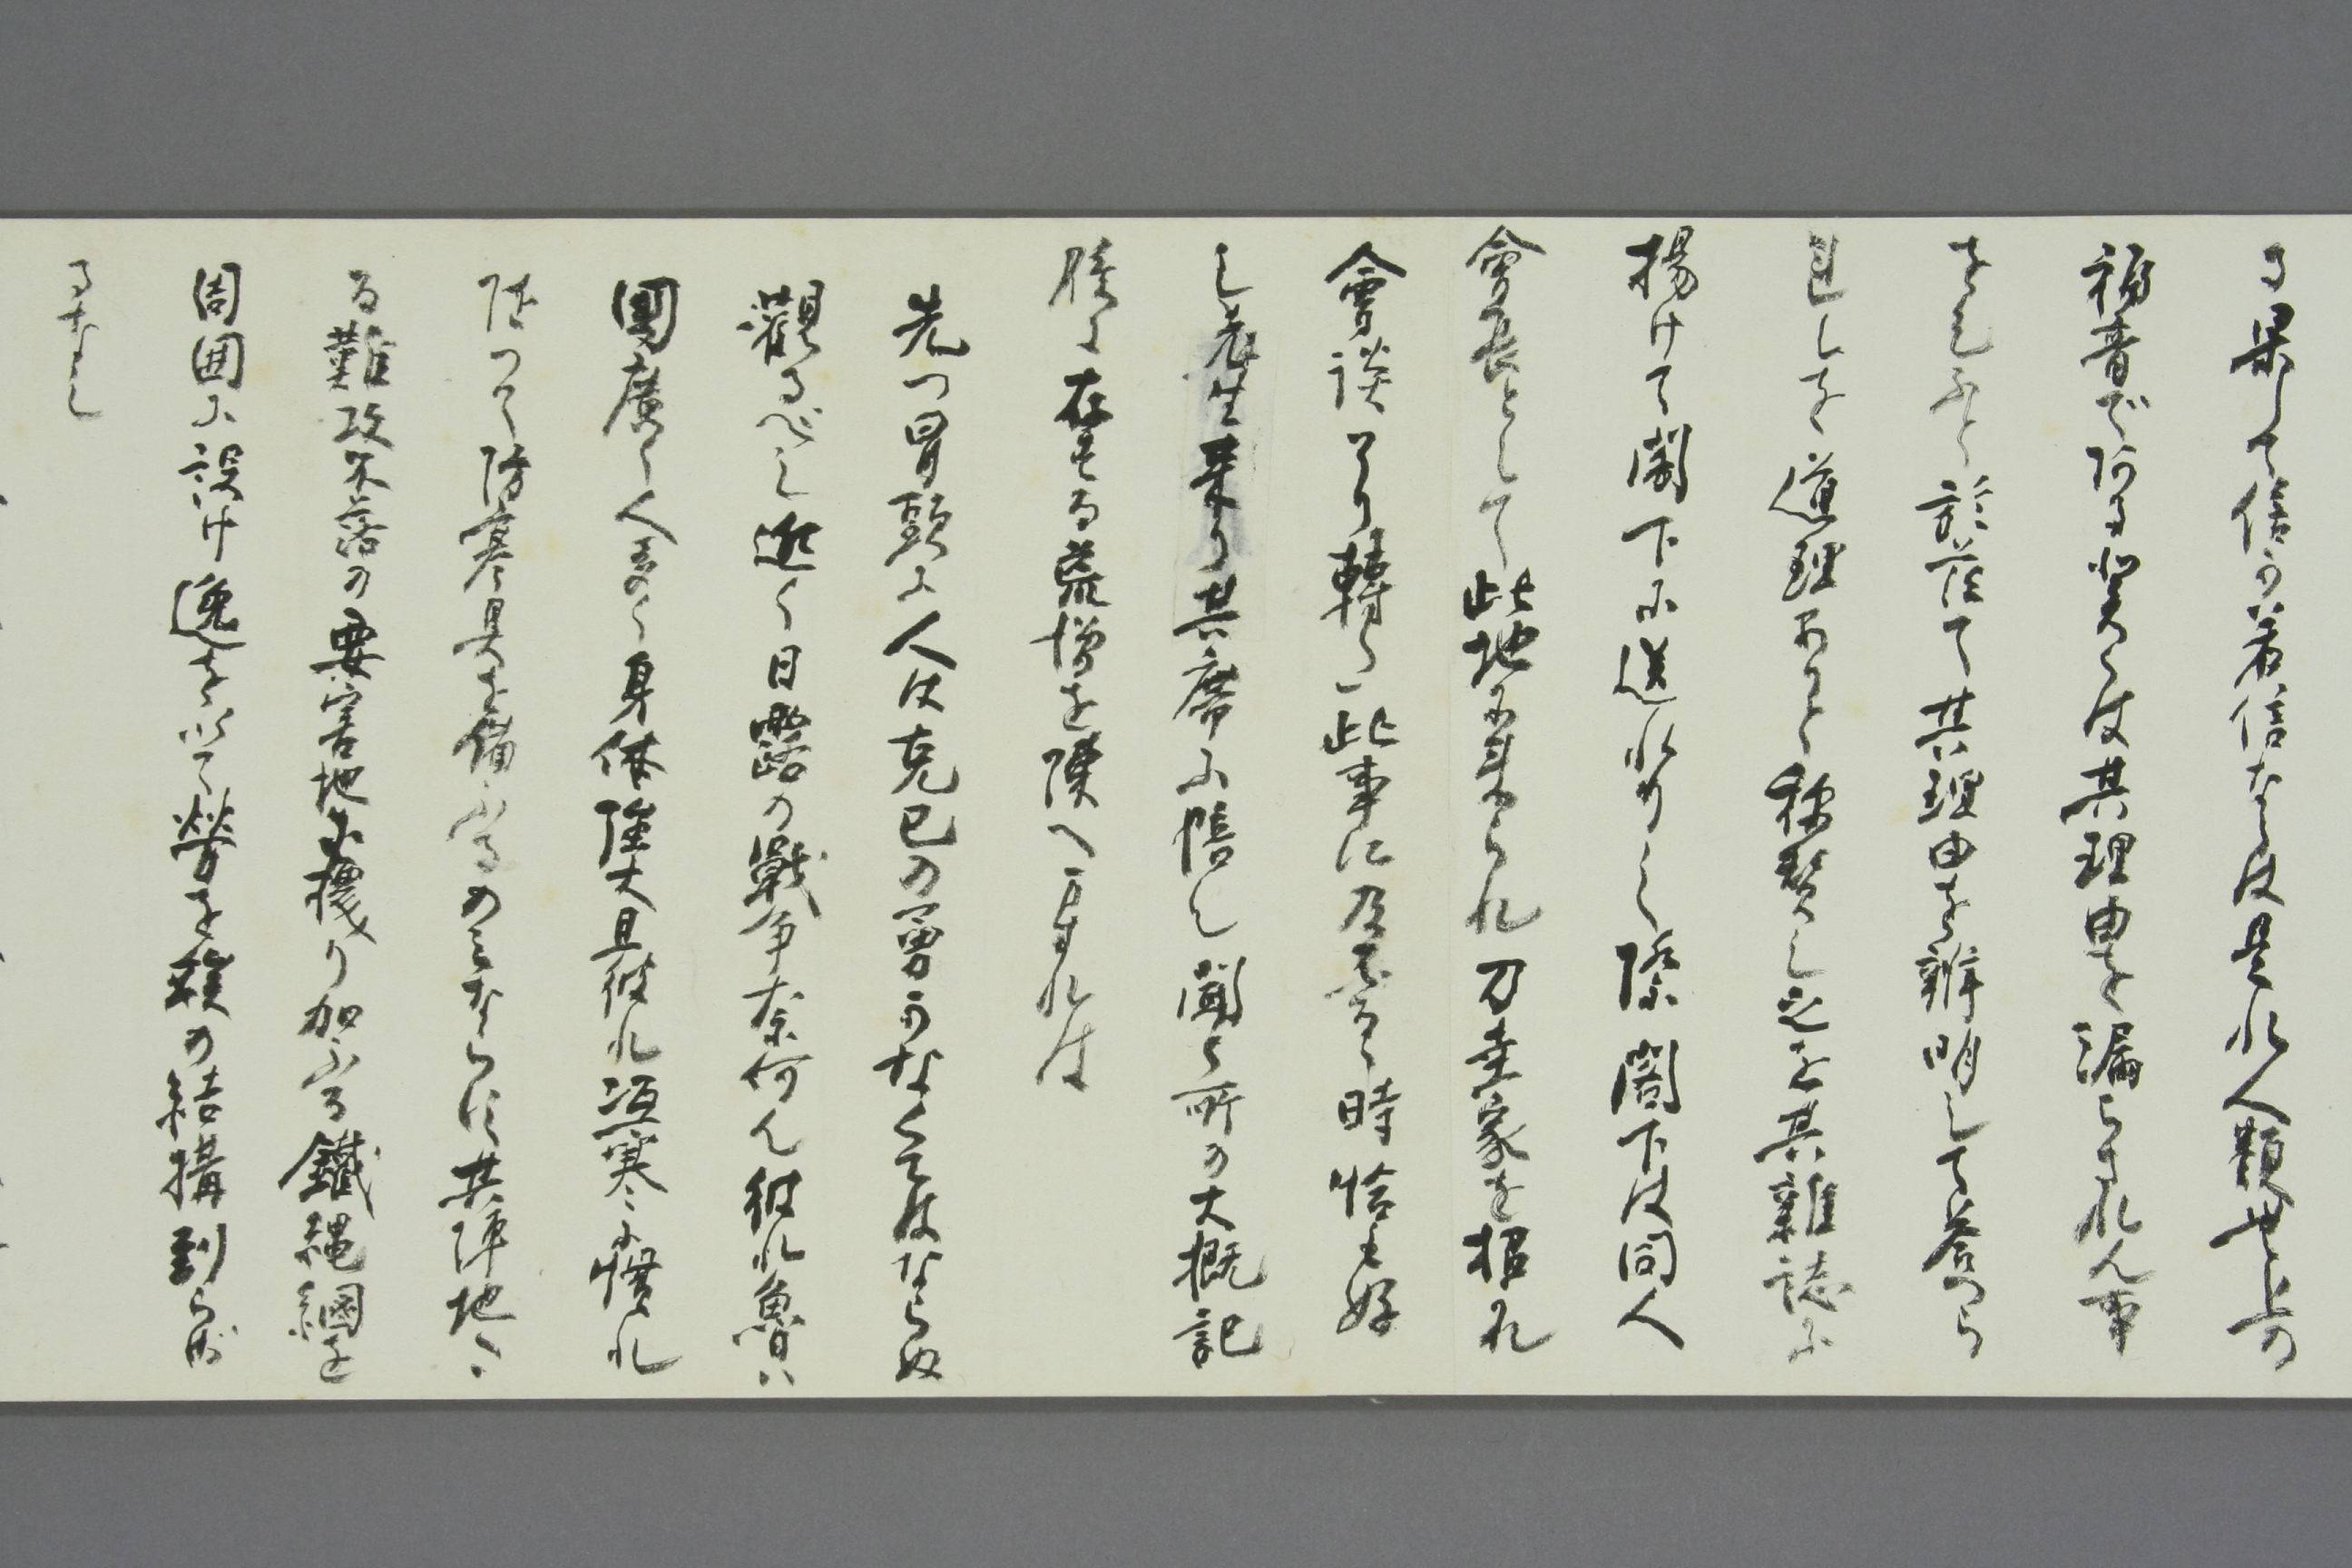 る果して信か若信ならは是れ人類世上の
福音である左らは其理由を漏らされん事
をと於茲て其理由を辨明して答へら
れしを道理ありと稱賛し之を其雜誌に
揚けて閣下に送附の際閣下は同人
會長として此地に来られ刀圭家を招れ
會談了り轉し此事に及る時恰も好
し老生来り其席に陪し聞く所の大概記
憶に在せる荒増を陳へますれは
先つ冒頭に人は克己の勇かなくてはならぬ
觀るへし近く日露の戰争奈何ん彼れ魯は
國廣く人多く身体強大且彼れ冱寒に慣れ
従つて防寒具を備ふるのみならす其陣地は
る難攻不落の要害地に據り加ふる鐵縄網を
周囲に設け逸を以て勞を竢の結搆到らさ
るなし